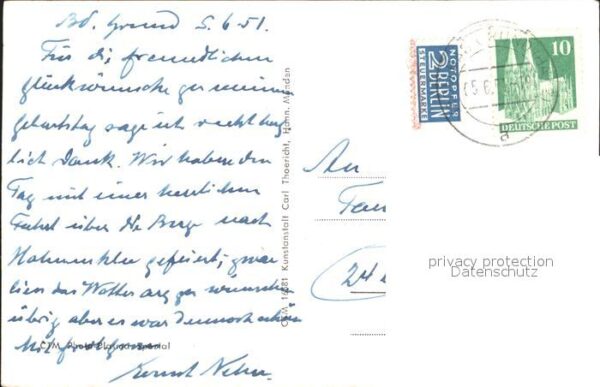 Bd. Grund 5.6.51.
Für die freundlichen
Glückwünsche zu meinem
Geburtstag sage ich recht herz
lich Dank. Wir haben den
Tag mit einer herrlichen
Fahrt über die Berge nach
Hahnenklee gefeiert; zwar
liess das Wetter arg zu wünschen
übrig aber es war dennoch schön
Mit
Ernst
CTM. Photo
CTM. 16281 Kunstanstalt Carl Thoericht, Hann. Münden
NOTOPFER
2 BERLIN
STEUERMARKE
10
DEUTSCHE POST
5.6.
a
An
Fam
(24
privacy protection
Datenschutz